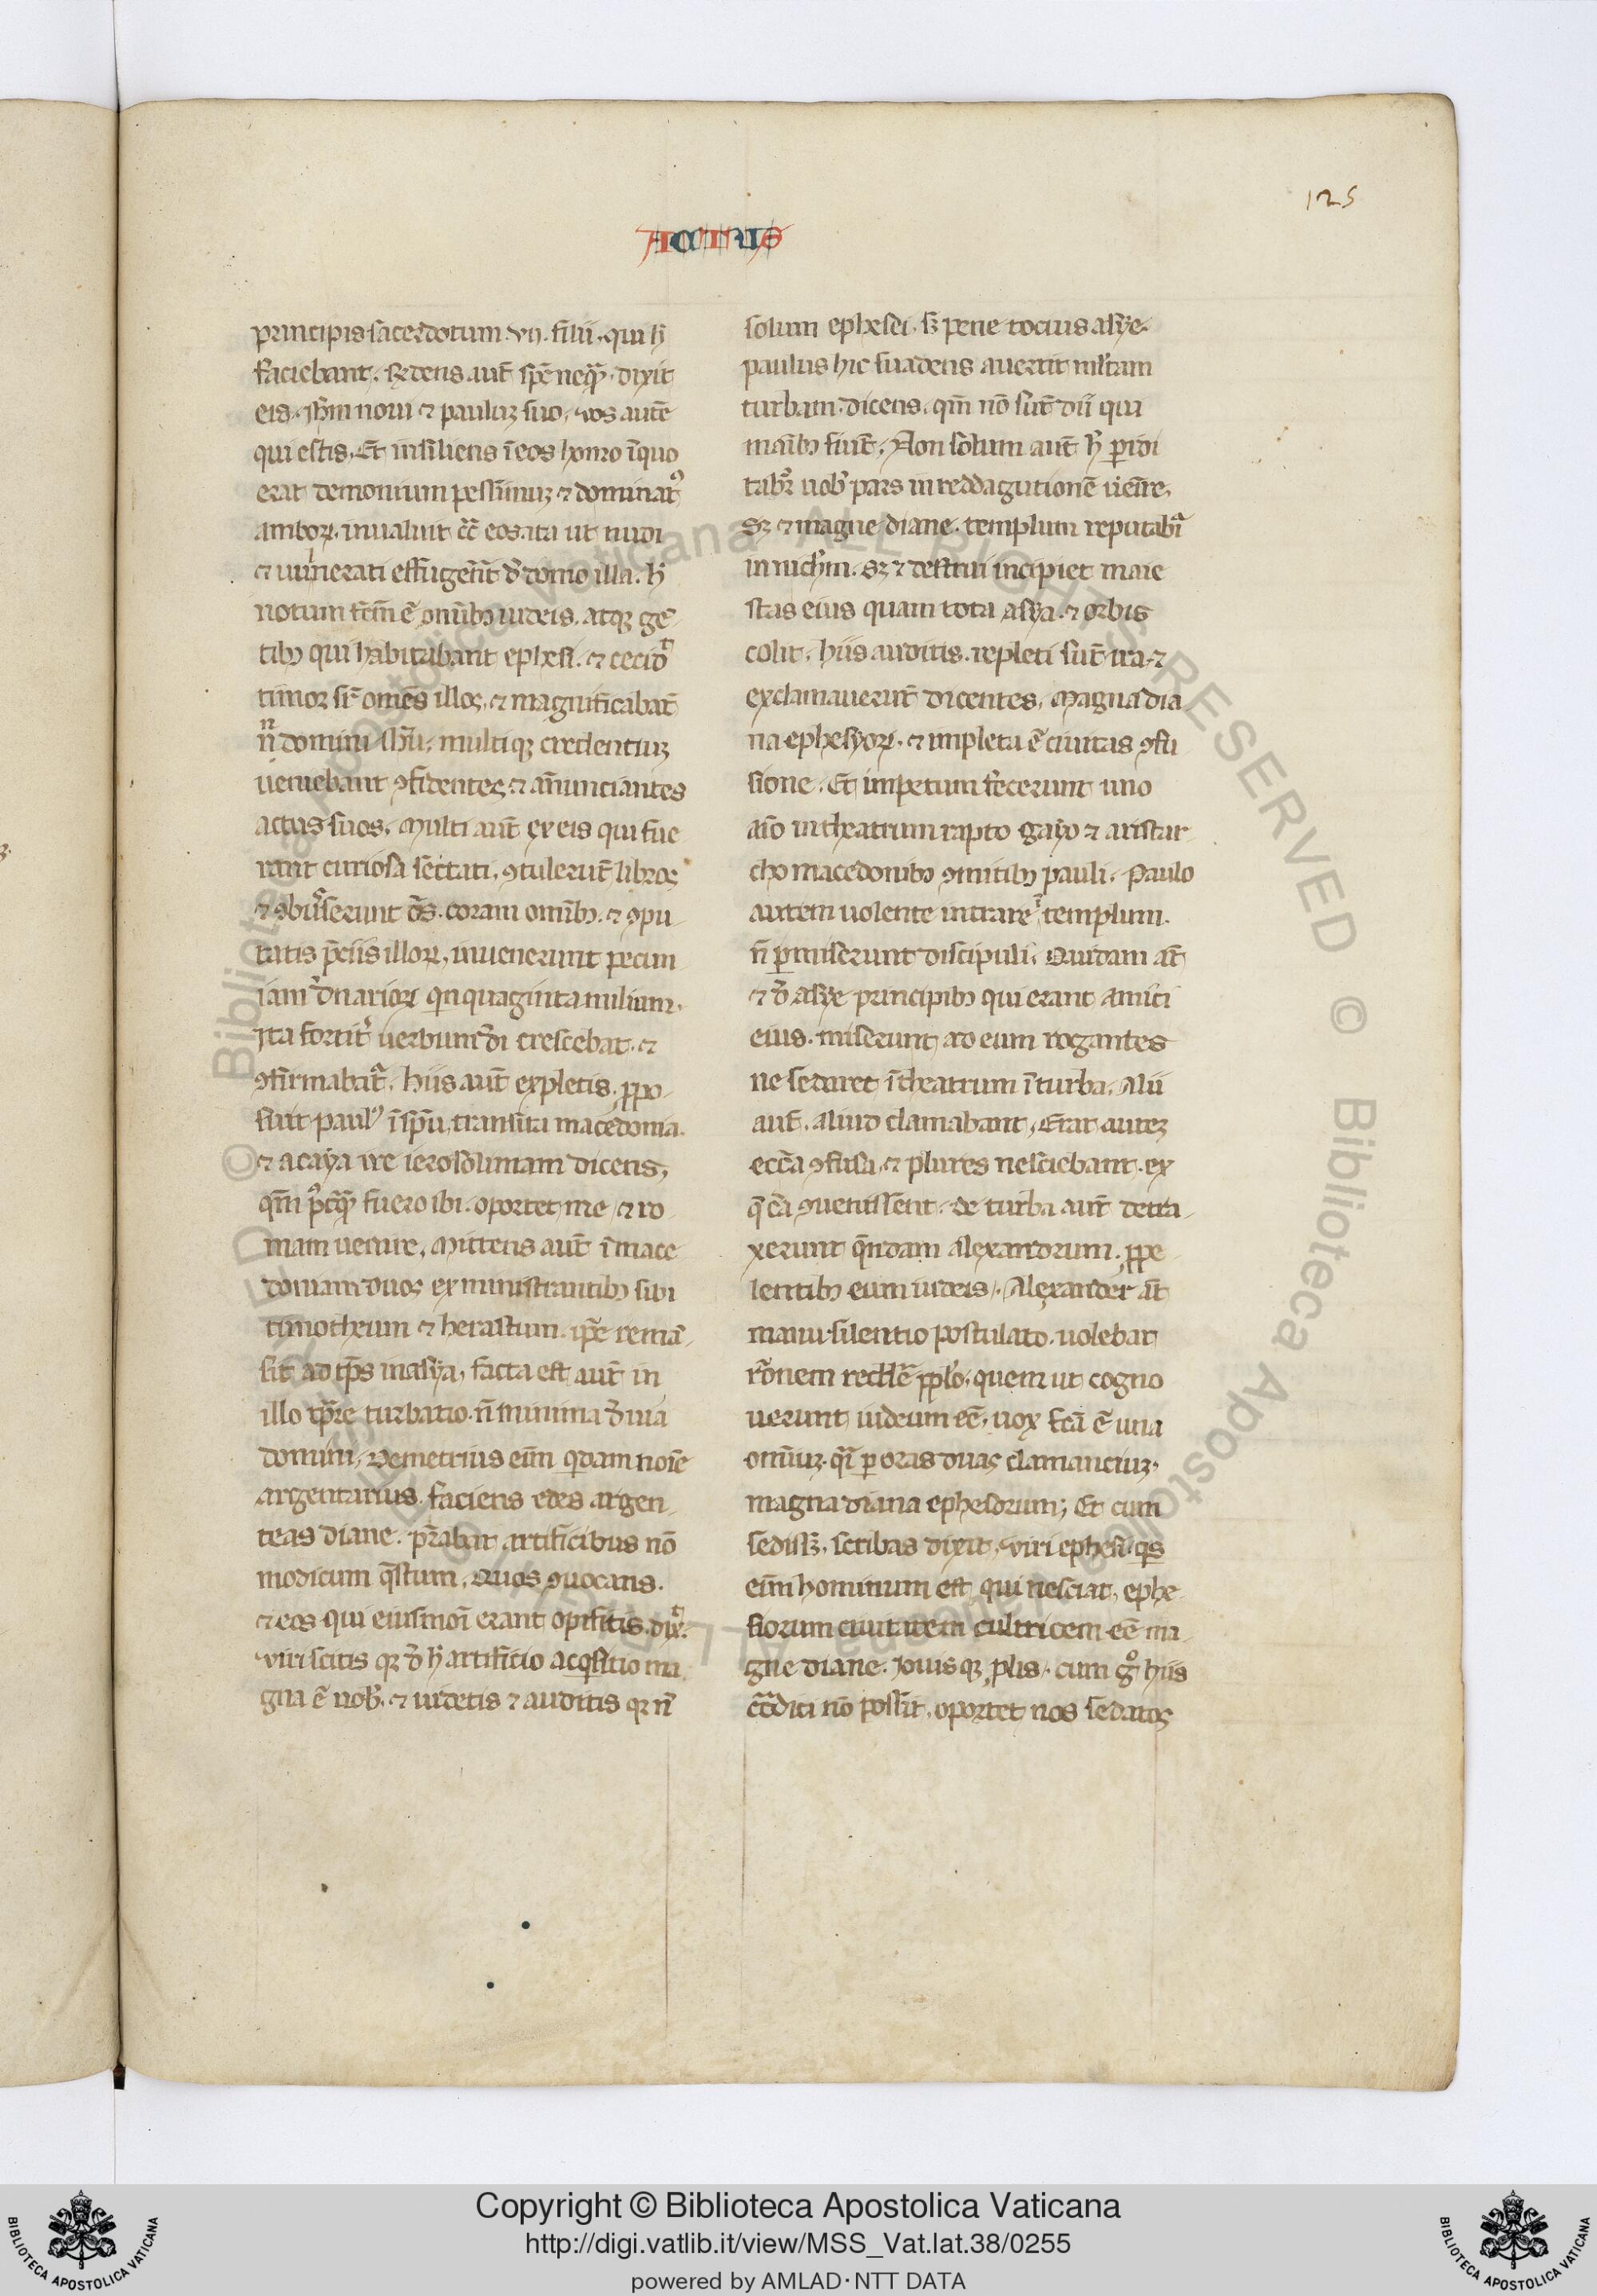 125
ACTUS
principis sacerdotum .vii. filii. qui h̄
faciebant. R̄dens aut̄ sp̄c neq̄ꝫ. dixit
eis. ih̄m noui ⁊ pauluꝫ scio. vos autē
qui estis. Et insiliens ī eos homo ī quo
erat demonium pessimuꝫ ⁊ dominatꝰ
amboꝝ. inualuit cc̄ eos. ita ut nudi
⁊ uulnerati effugeēnt d̄ domo illa. h̄
notum fc̄m ē om̄ibꝫ iudeis. atqꝫ gē
tibꝫ qui habitabant ephesi. ⁊ cecidͭ
timor sr̄ omēs illos. ⁊ magnificabāt
nn̄ domini ih̄u. multi qꝫ credentiuꝫ
ueniebant ꝯfidentes. ⁊ an̄unciantes
actus suos. Multi aut̄ ex eis qui fue
rant curiosa sectati. ꝯtulerūt libros
⁊ ꝯbuserunt os̄. coram om̄ibꝫ. ⁊ ꝯpu
tatis p̄ciis illoꝝ. inuenerunt pecun
iam dn̄arioꝝ q̄nquaginta milium.
Ita fortit̉ uerbum di crescebat. ⁊
ꝯfirmabat̉. hiis aut̄ expletis. ꝓpo
suit paulꝰ ī sp̄u, transita macedonia.
⁊ acaya ire ierosolimam dicens,
qm̄ pꝰtq̄ꝫ fuero ibi. oportet me ⁊ ro
mam uenire. Mittens aut̄ ī mace
doniam duos ex ministrantibꝫ sibi
timotheum ⁊ herastum. ip̄e remā
sit ad tp̄s in asya, facta est aut̄ in
illo tp̄re turbatio. n̄ minima d̄ uia
domini. Demetrius eīm qdam noīe
argentarius. faciens edes argen
teas diane. pr̄abat artificibus nō
modicum q̄stum. Quos ꝯuocans.
⁊ eos qui eiusmōi erant opifitis. dixͭ.
viri scitis qꝫ d̄ h̄ artificio acq̄sitio ma
gna ē nob̄. ⁊ uidetis ⁊ auditis qꝫ n̄
solum ephesdi. sꝫ pene tocius asye.
paulus hic suadens auertit mltam
turbam. dicens. qm̄ nō sūt dii qui
maībꝫ fiūt. Non solum aut̄ h̄ ꝑidi
tabr̉ uob̄ pars in reddagutionē uēire.
Sꝫ ⁊ magne diane. templum reputabr̉
in nichm. Sꝫ ⁊ destrui incipiet maie
stas eius quam tota asya. ⁊ orbis
colit. hiis auditis. repleti sūt ira. ⁊
exclamauerūt dicentes. Magna dia
na ephesyoꝝ. ⁊ impleta ē ciuitas ꝯfu
sione. Et impetum fecerunt uno
aīo in theatrum rapto gayo ⁊ aristar
cho macedonibꝫ ꝯmitibꝫ pauli. Paulo
autem uolente intrare ī templum.
n̄ ꝑmiserunt discipuli. Quidam at̄
⁊ d̄ asye principibꝫ qui erant amici
eius. miserunt ad eum rogantes
ne se daret ī theatrum ī turba. Alii
aut̄. aliud clamabant. Erat autez
ecc̄a ꝯfusa. ⁊ plures nesciebant. ex
q̄ cā ꝯuenissent. de turba aut̄ detra
xerunt q̄ndam alexandrum. ꝓpe
lentibꝫ eum iudeis. Alexander at̄
manu silentio postulato. uolebat
rōnem reddē pplo. quem ut cogno
uerunt iudeum eē. uox fcā ē una
omīuꝫ. q̄i ꝑ oras duas clamanciuꝫ.
magna diana ephesorum; Et cum
sedissꝫ. scribas dixit. viri ephesi. qis
eīm hominum est qui nesciat. ephe
siorum ciuitatem cultricem eē ma
gne diane. Iouis qꝫ ꝓlis. cum gͦ hiis
cōdici nō possīt. oportet nos sedatos
Copyright © Biblioteca Apostolica Vaticana
http://digi.vatlib.it/view/MSS_Vat.lat.38/0255
powered by AMLAD·NTT DATA
BIBLIOTECA APOSTOLICA VATICANA
BIBLIOTECA APOSTOLICA VATICANA